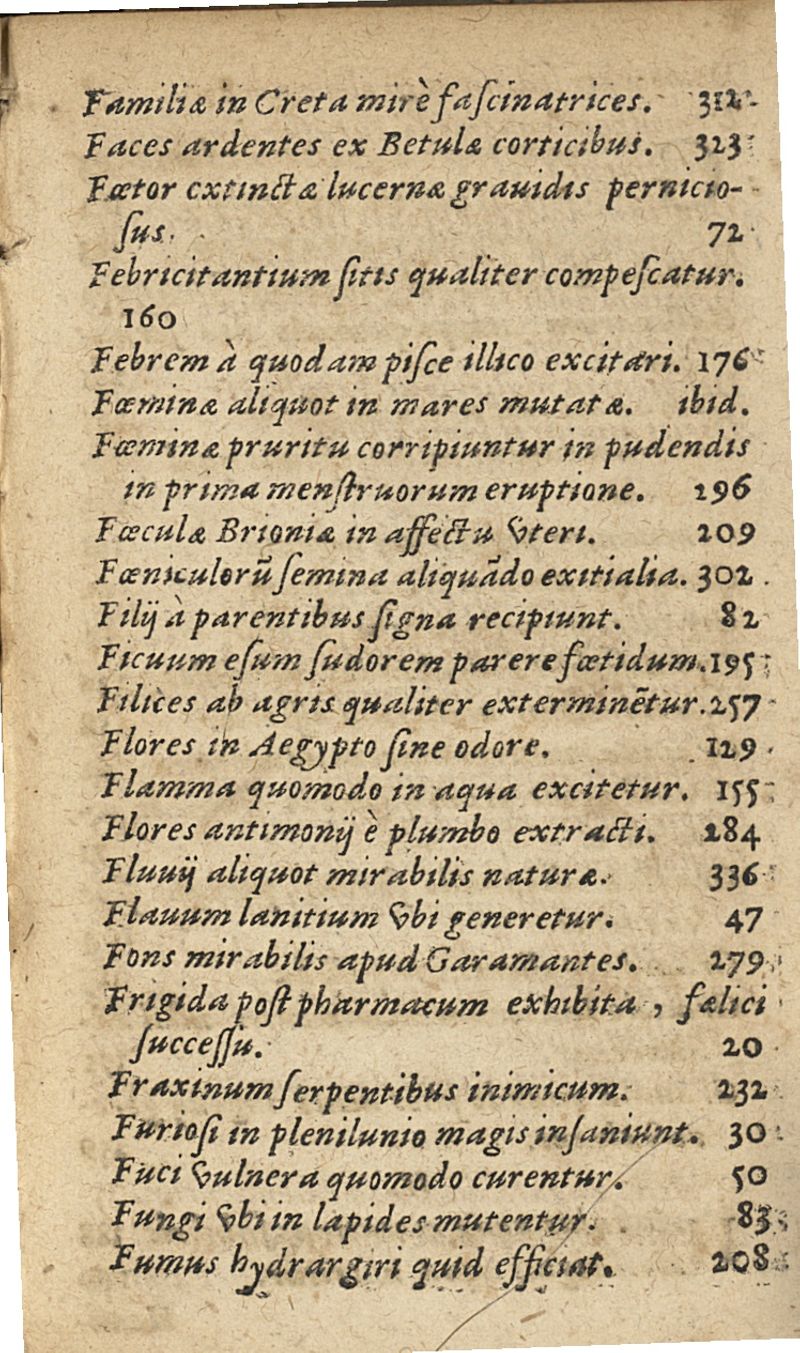 Familiæ in Creta mirè faſcinatrices. 312
Faces ardentes ex Betulæ corticibus. 323
Fœtor extinctæ lucernæ grauidis pernicio-
ſus. 72
Febricitantium ſitis qualiter compeſcatur.
160
Febrem à quodam piſce illico excitari. 176
Fœminæ aliquot in mares mutatæ. ibid.
Fœminæ pruritu corripiuntur in pudendis
in prima menſtruorum eruptione. 296
Fœculæ Brioniæ in affectu vteri. 209
Fœniculorũ ſemina aliquãdo exitialia. 302
Filij à parentibus ſigna recipiunt. 82
Ficuum eſum ſudorem parere fœtidum. 195
Filices ab agris qualiter exterminẽtur. 257
Flores in Aegypto ſine odore. 129
Flamma quomodo in aqua excitetur. 155
Flores antimonij è plumbo extracti. 284
Fluuij aliquot mirabilis naturæ. 336
Flauum lanitium vbi generetur. 47
Fons mirabilis apud Garamantes. 279
Frigida poſt pharmacum exhibita, fœlici
ſucceſſu. 20
Fraxinum ſerpentibus inimicum. 232
Furioſi in plenilunio magis inſaniunt. 30
Fuci vulnera quomodo curentur. 50
Fungi vbi in lapides mutentur. 83
Fumus hydrargiri quid efficiat. 208